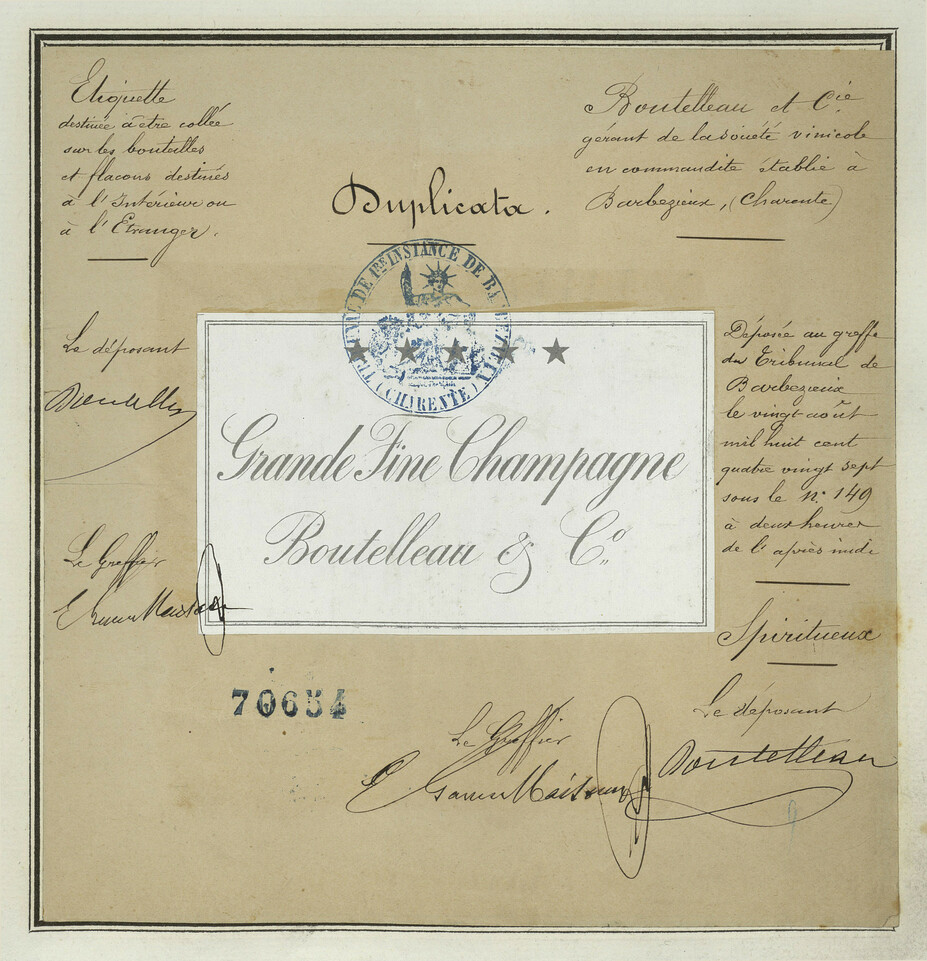 Etiquette
destinée à être collée
sur les bouteilles
et flacons destinés
à l'Intérieur ou
à l'Etranger.
Duplicata.
Boutelleau et Cie
gérant de la société vinicole
en commandite établie à
Barbezieux, (Charente)
TRIBUNAL DE 1RE INSTANCE DE BARBEZIEUX
(CHARENTE)
Grande Fine Champagne
Boutelleau & Co
Le déposant
Boutelleau
Le Greffier
Déposée au greffe
du Tribunal de
Barbezieux
le vingt août
mil huit cent
quatre vingt sept
sous le n° 149
à deux heures
de l'après midi
Spiritueux
70654
Le Greffier
Le déposant
Boutelleau